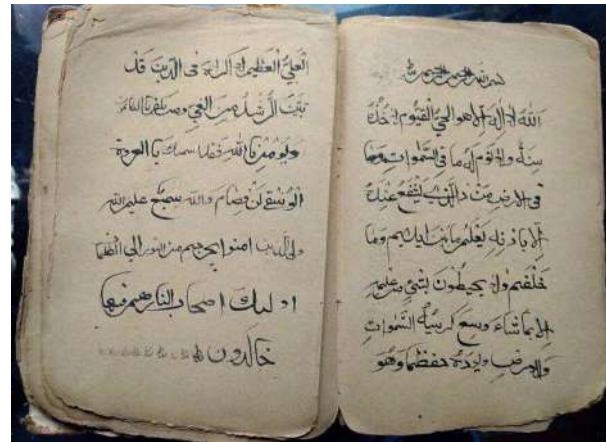 بسم الله الرحمن الرحيم
الله لا اله الا هو الحي القيوم لا تاخذه
سنة ولا نوم له ما في السموات وما
في الارض من ذالذي يشفع عنده
الا باذنه يعلم ما بين ايديهم وما
خلفهم ولا يحيطون بشئ من علمه
الا بما شاء وسع كرسيه السموات
والارض ولا يؤده حفظهما وهو
العلي العظيم لا اكراه في الدين قد
تبين الرشد من الغي ومن يكفر بالطاغوت
ويومن بالله فقد استمسك بالعروة
الوثقى لن فصام والله سميع عليم الله
ولي الذين امنوا يخرجهم من النور الى الظلما
اوليك اصحاب النار هم فيها
خالدون